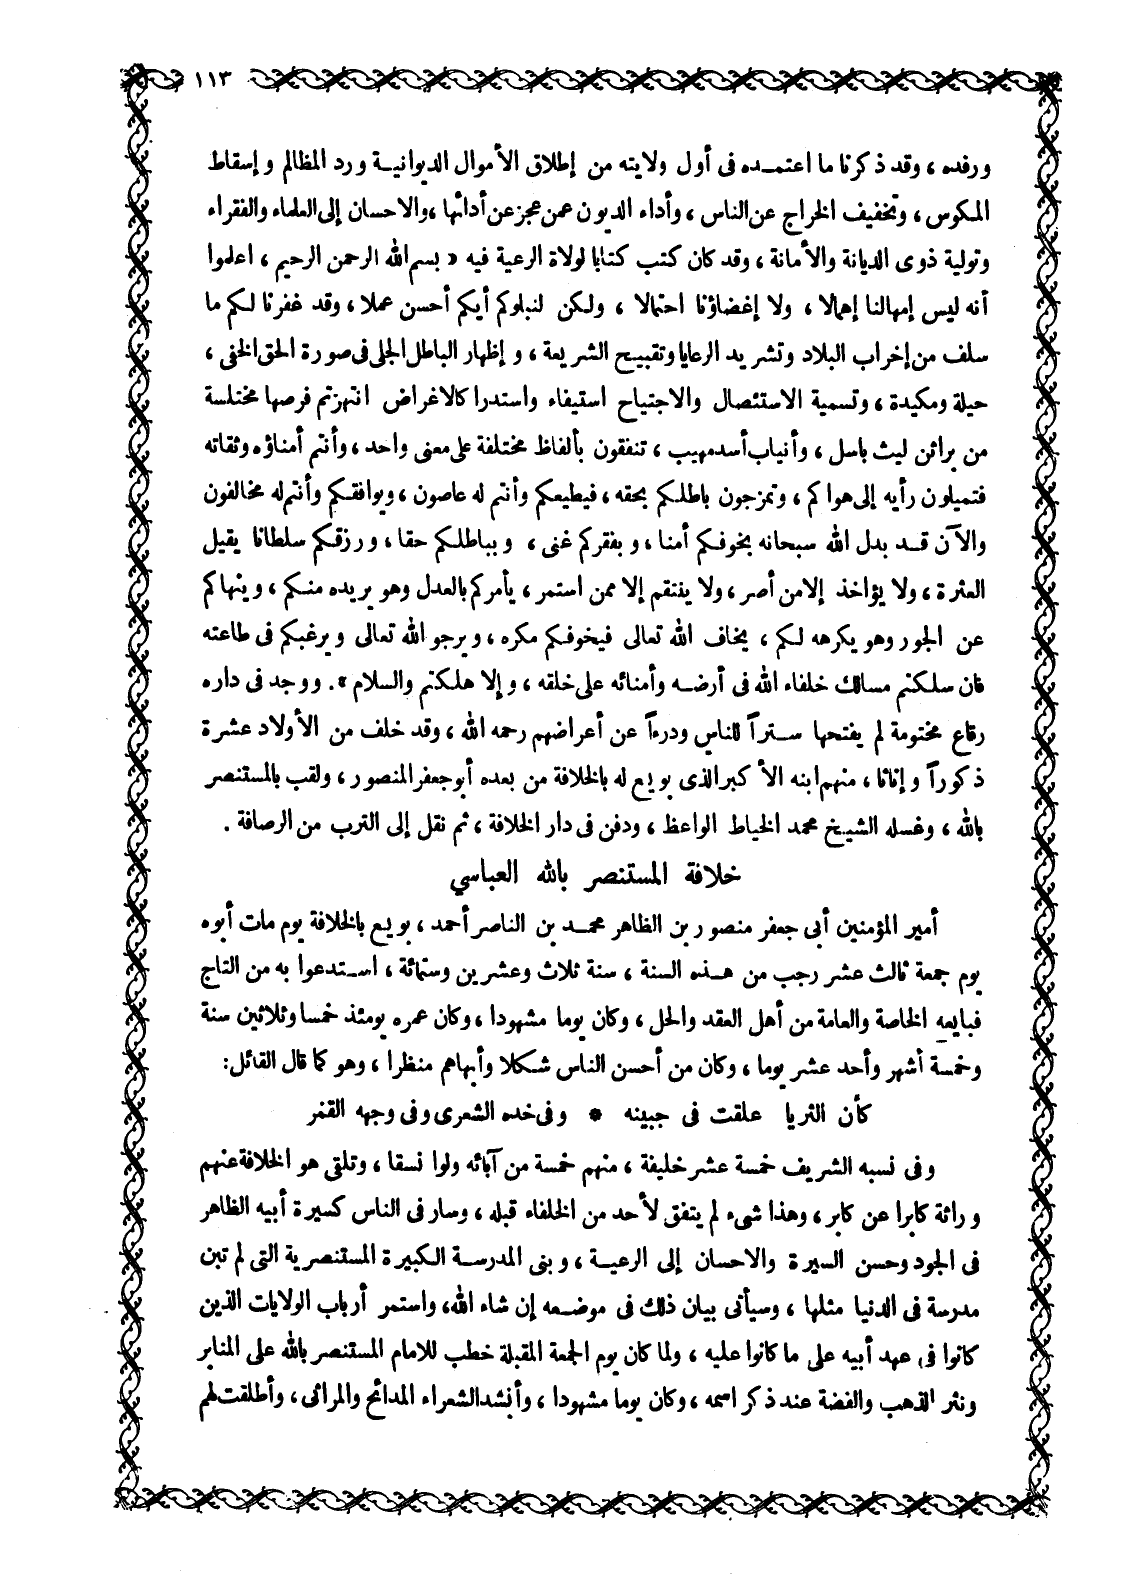 ١١٣
ورفده ، وقد ذكرنا ما اعتمده فى أول ولايته من إطلاق الأموال الديوانية ورد المظالم وإسقاط
المكوس ، وتخفيف الخراج عن الناس ، وأداء الديون عمن عجز عن أدائها ، والاحسان إلى العلماء والفقراء
وتولية ذوى الديانة والأمانة ، وقد كان كتب كتابا لولاة الرعية فيه « بسم الله الرحمن الرحيم ، اعلموا
أنه ليس إمهالنا إهمالا ، ولا إغضاؤنا احتمالا ، ولكن لنبلوكم أيكم أحسن عملا ، وقد غفرنا لكم ما
سلف من إخراب البلاد وتشريد الرعايا وتقبيح الشريعة ، وإظهار الباطل الجلى فى صورة الحق الخفى ،
حيلة ومكيدة ، وتسمية الاستئصال والاجتياح استيفاء واستدراكا لاغراض انتهزتم فرصها مختلسة
من براثن ليث باسل ، وأنياب أسد مهيب ، تنفقون بألفاظ مختلفة على معنى واحد ، وأنتم أمناؤه وثقاته
فتميلون رأيه إلى هواكم ، وتمزجون باطلكم بحقه ، فيطيعكم وأنتم له عاصون ، ويوافقكم وأنتم له مخالفون
والآن قد بدل الله سبحانه بخوفكم أمنا ، وبفقركم غنى ، وبباطلكم حقا ، ورزقكم سلطانا يقيل
العثرة ، ولا يؤاخذ إلا من أصر ، ولا ينتقم إلا ممن استمر ، يأمركم بالعدل وهو يريده منكم ، وينهاكم
عن الجور وهو يكرهه لكم ، يخاف الله تعالى فيخوفكم مكره ، ويرجو الله تعالى ويرغبكم فى طاعته
فان سلكتم مسالك خلفاء الله فى أرضه وأمنائه على خلقه ، وإلا هلكتم والسلام » . ووجد فى داره
رقاع مختومة لم يفتحها ستراً للناس ودرءاً عن أعراضهم رحمه الله ، وقد خلف من الأولاد عشرة
ذكوراً وإناثا ، منهم ابنه الأكبر الذى بويع له بالخلافة من بعده أبو جعفر المنصور ، ولقب بالمستنصر
بالله ، وغسله الشيخ محمد الخياط الواعظ ، ودفن فى دار الخلافة ، ثم نقل إلى الترب من الرصافة .
خلافة المستنصر بالله العباسي
أمير المؤمنين أبى جعفر منصور بن الظاهر محمد بن الناصر أحمد ، بويع بالخلافة يوم مات أبوه
يوم جمعة ثالث عشر رجب من هذه السنة ، سنة ثلاث وعشرين وستمائة ، استدعوا به من التاج
فبايعه الخاصة والعامة من أهل العقد والحل ، وكان يوما مشهودا ، وكان عمره يومئذ خمسا وثلاثين سنة
وخمسة أشهر وأحد عشر يوما ، وكان من أحسن الناس شكلا وأبهاهم منظرا ، وهو كما قال القائل :
كأن الثريا علقت فى جبينه * وفى خده الشعرى وفى وجهه القمر
وفى نسبه الشريف خمسة عشر خليفة ، منهم خمسة من آبائه ولوا نسقا ، وتلقى هو الخلافة عنهم
وراثة كابرا عن كابر ، وهذا شىء لم يتفق لأحد من الخلفاء قبله ، وسار فى الناس كسيرة أبيه الظاهر
فى الجود وحسن السيرة والاحسان إلى الرعية ، وبنى المدرسة الكبيرة المستنصرية التى لم تبن
مدرسة فى الدنيا مثلها ، وسيأتى بيان ذلك فى موضعه إن شاء الله، واستمر أرباب الولايات الذين
كانوا فى عهد أبيه على ما كانوا عليه ، ولما كان يوم الجمعة المقبلة خطب للامام المستنصر بالله على المنابر
ونثر الذهب والفضة عند ذكر اسمه ، وكان يوما مشهودا ، وأنشد الشعراء المدائح والمراثى ، وأطلقت لهم